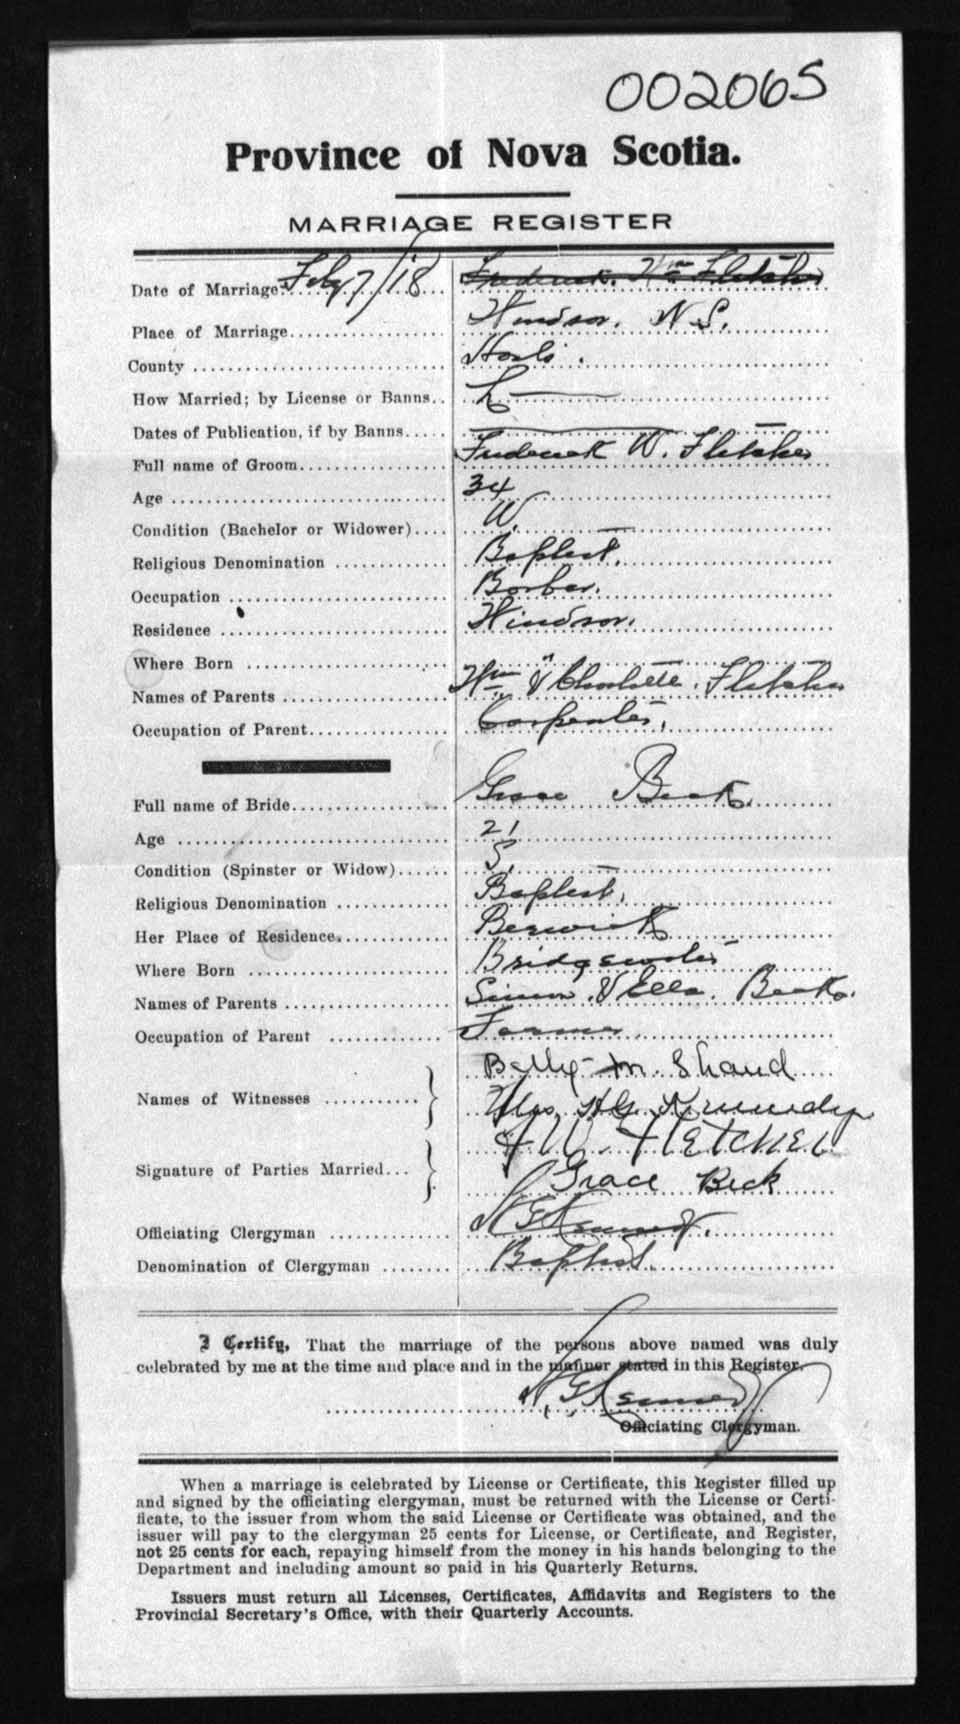 002065
Province of Nova Scotia.
MARRIAGE REGISTER
Date of Marriage Feby 7/18 Frederick Wm Fletcher
Place of Marriage Windsor. N.S.
County Hants.
How Married; by License or Banns L
Dates of Publication, if by Banns
Full name of Groom Frederick W. Fletcher
Age 34
Condition (Bachelor or Widower) W.
Religious Denomination Baptist.
Occupation Barber.
Residence Windsor.
Where Born "
Names of Parents Wm & Charlotte Fletcher
Occupation of Parent Carpenter.
Full name of Bride Grace Beck.
Age 21
Condition (Spinster or Widow) S.
Religious Denomination Baptist.
Her Place of Residence Berwick
Where Born Bridgewater
Names of Parents Simon & Ella Beck.
Occupation of Parent Farmer
Names of Witnesses M. Shand
Mrs. H.G. Kennedy
Signature of Parties Married F W. FLETCHER
Grace Beck
Officiating Clergyman H G Kennedy.
Denomination of Clergyman Baptist.
I Certify, That the marriage of the persons above named was duly
celebrated by me at the time and place and in the manner stated in this Register.
H. G. Kennedy
Officiating Clergyman.
When a marriage is celebrated by License or Certificate, this Register filled up
and signed by the officiating clergyman, must be returned with the License or Certi-
ficate, to the issuer from whom the said License or Certificate was obtained, and the
issuer will pay to the clergyman 25 cents for License, or Certificate, and Register,
not 25 cents for each, repaying himself from the money in his hands belonging to the
Department and including amount so paid in his Quarterly Returns.
Issuers must return all Licenses, Certificates, Affidavits and Registers to the
Provincial Secretary's Office, with their Quarterly Accounts.